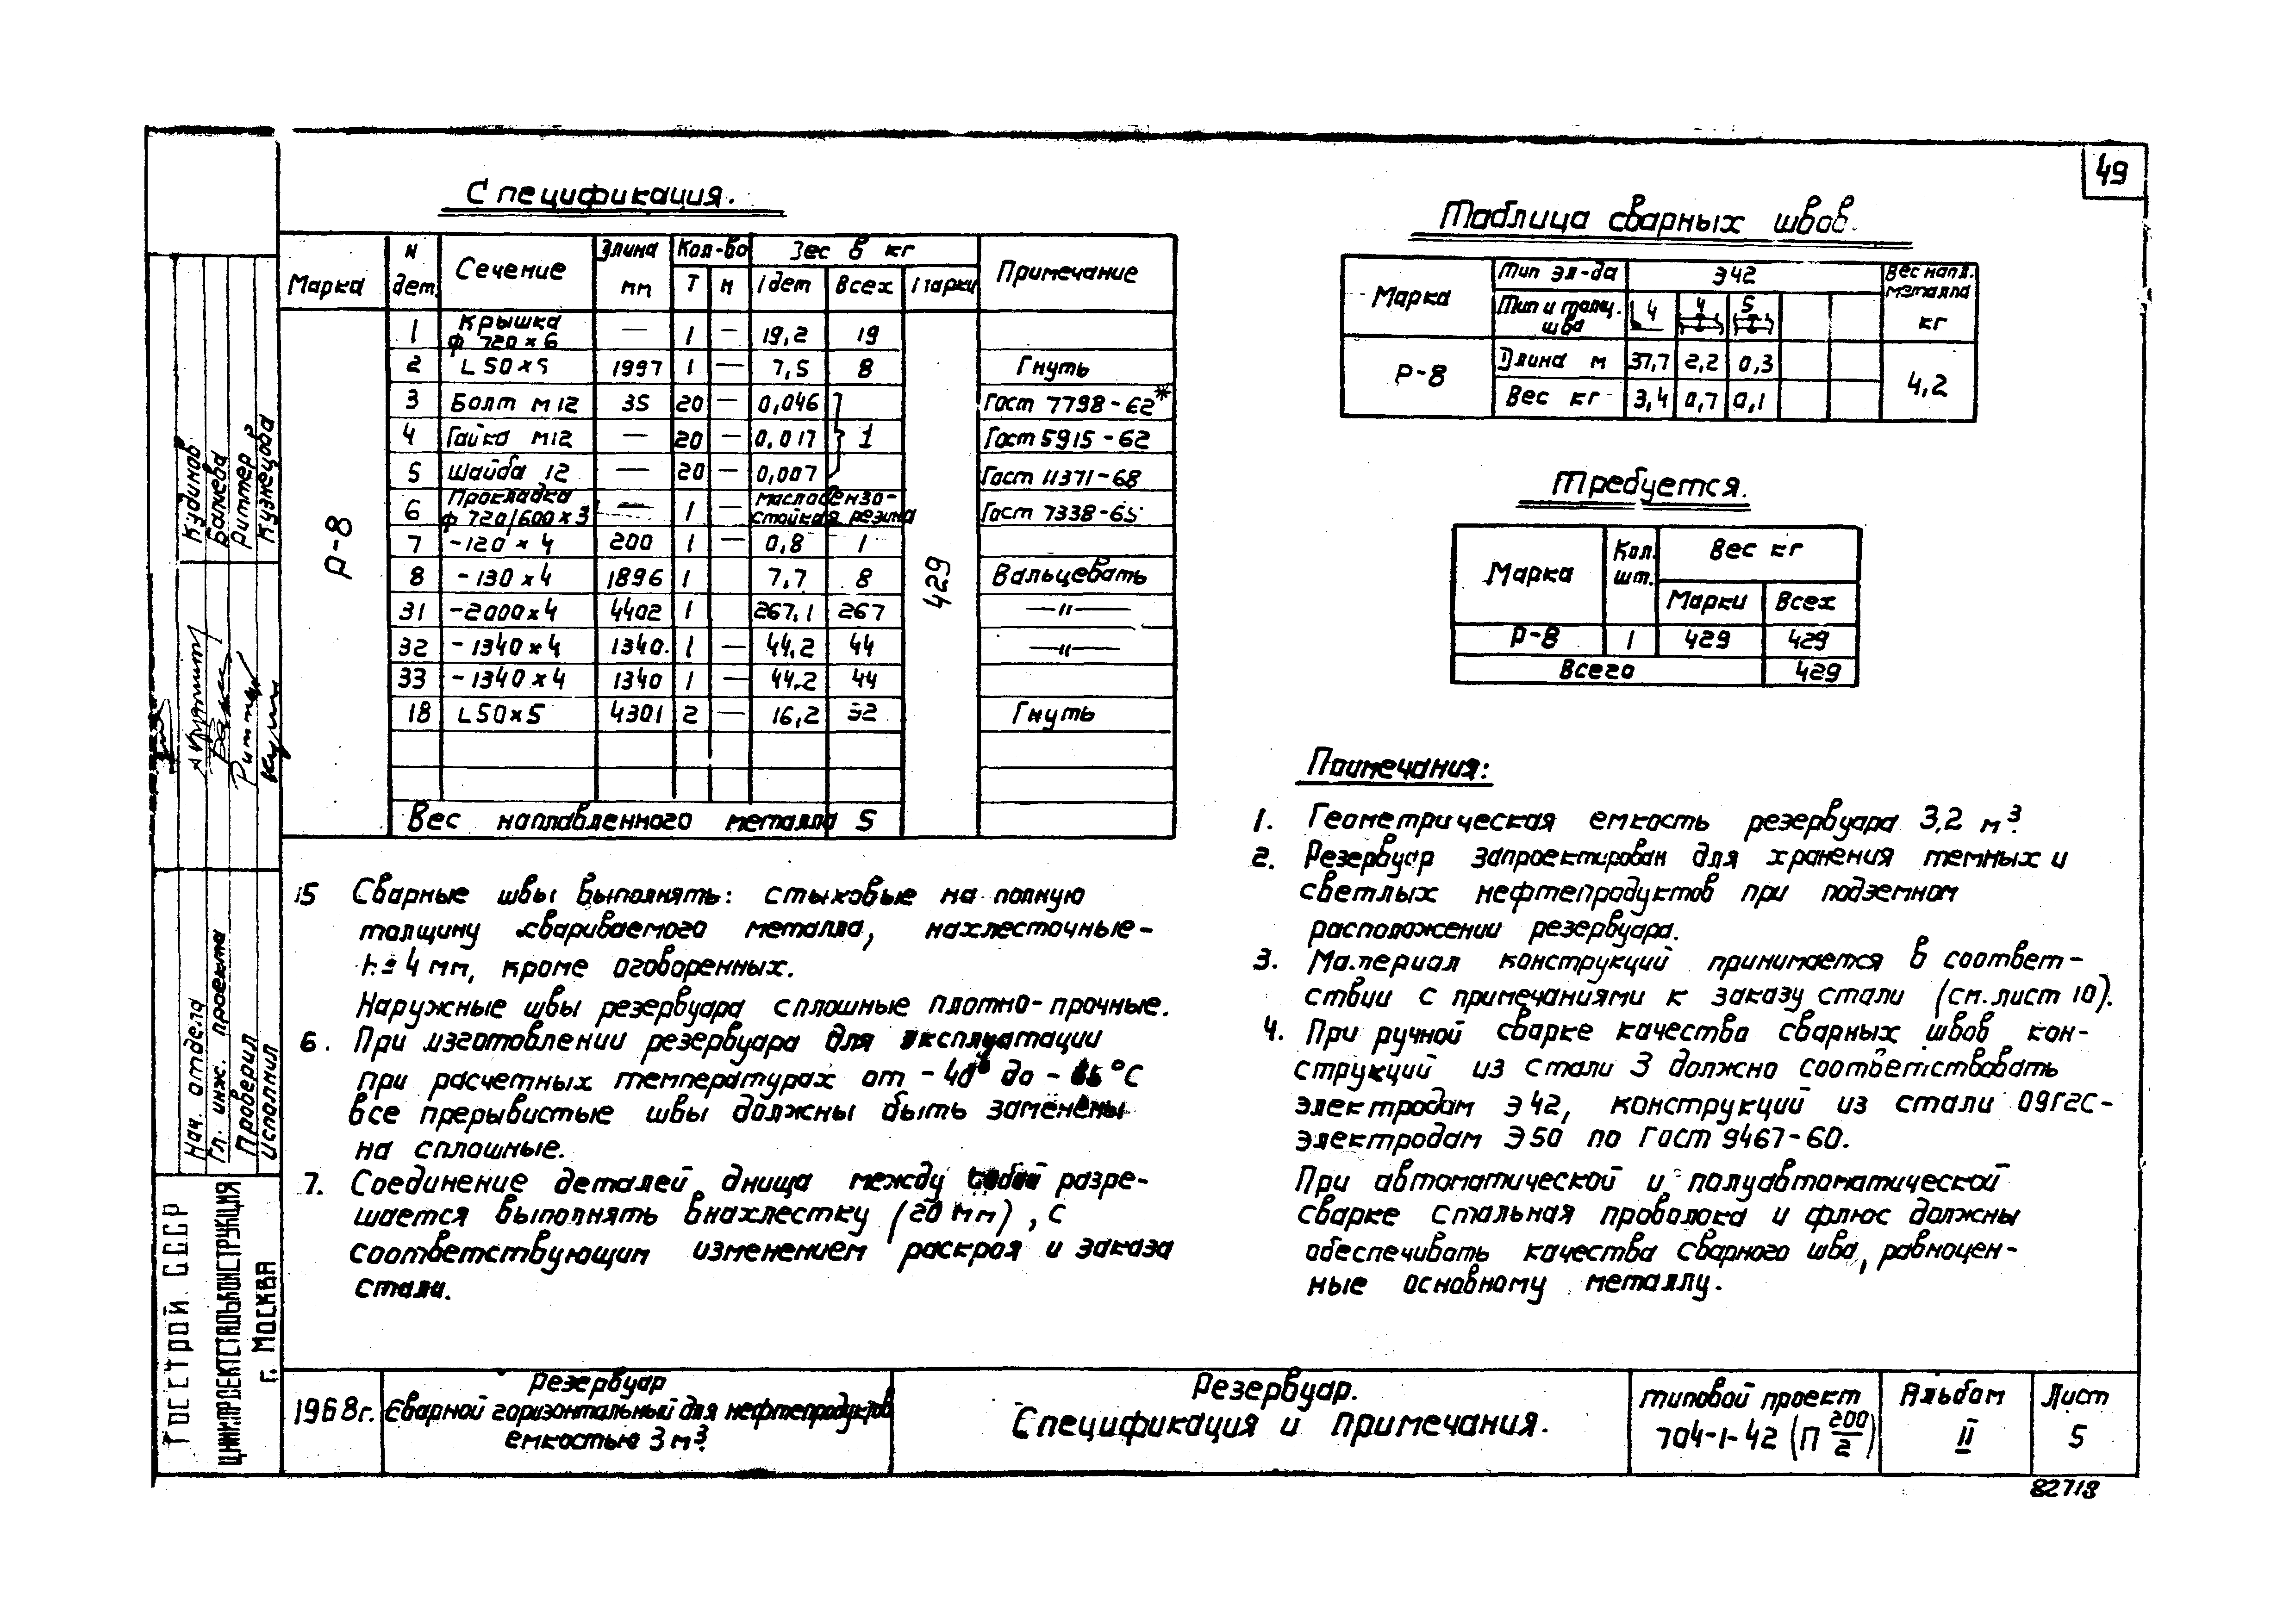 49
Спецификация.
Марка N дет. Сечение Длина мм Кол-во Т Н Вес в кг 1 дет Всех Марки Примечание
Р-8 429
1 Крышка ф 720×6 — 1 — 19,2 19
2 L 50×5 1997 1 — 7,5 8 Гнуть
3 Болт М12 35 20 — 0,046 Гост 7798-62*
4 Гайка М12 — 20 — 0,017 1 Гост 5915-62
5 Шайба 12 — 20 — 0,007 Гост 11371-68
6 Прокладка ф 720/600×3 — 1 — маслобензостойкая резина Гост 7338-65
7 -120×4 200 1 — 0,8 1
8 -130×4 1896 1 7,7 8 Вальцевать
31 -2000×4 4402 1 267,1 267 —"—
32 -1340×4 1340 1 — 44,2 44 —"—
33 -1340×4 1340 1 — 44,2 44
18 L50×5 4301 2 — 16,2 32 Гнуть
Вес наплавленного металла 5
Таблица сварных швов.
Марка Тип эл-да Э42 Вес напл. металла кг
Тип и толщ. шва 4 4 5
Р-8 Длина м 37,7 2,2 0,3 4,2
Вес кг 3,4 0,7 0,1
Требуется.
Марка Кол. шт. Вес кг
Марки Всех
Р-8 1 429 429
Всего 429
Примечания:
1. Геометрическая емкость резервуара 3,2 м³.
2. Резервуар запроектирован для хранения темных и
светлых нефтепродуктов при подземном
расположении резервуара.
3. Материал конструкций принимается в соответ-
ствии с примечаниями к заказу стали (см. лист 10).
4. При ручной сварке качества сварных швов кон-
струкций из стали 3 должно соответствовать
электродам Э42, конструкций из стали 09Г2С-
электродам Э50 по Гост 9467-60.
При автоматической и полуавтоматической
сварке стальная проволока и флюс должны
обеспечивать качества сварного шва, равноцен-
ные основному металлу.
5 Сварные швы выполнять: стыковые на полную
толщину свариваемого металла, нахлесточные-
h=4 мм, кроме оговоренных.
Наружные швы резервуара сплошные плотно-прочные.
6. При изготовлении резервуара для эксплуатации
при расчетных температурах от -40° до - °С
все прерывистые швы должны быть заменены
на сплошные.
7. Соединение деталей днища между собой разре-
шается выполнять внахлестку (20 мм), с
соответствующим изменением раскроя и заказа
стали.
Нач. отдела Кудинов
Гл. инж. проекта Валиева
Проверил Риттер
Исполнил Кузнецова
Госстрой СССР
ЦНИИПРОЕКТСТАЛЬКОНСТРУКЦИЯ
г. Москва
1968г.
Резервуар
сварной горизонтальный для нефтепродуктов
емкостью 3 м³.
Резервуар.
Спецификация и примечания.
типовой проект
704-1-42 (П 200/2)
Альбом
II
Лист
5
82718